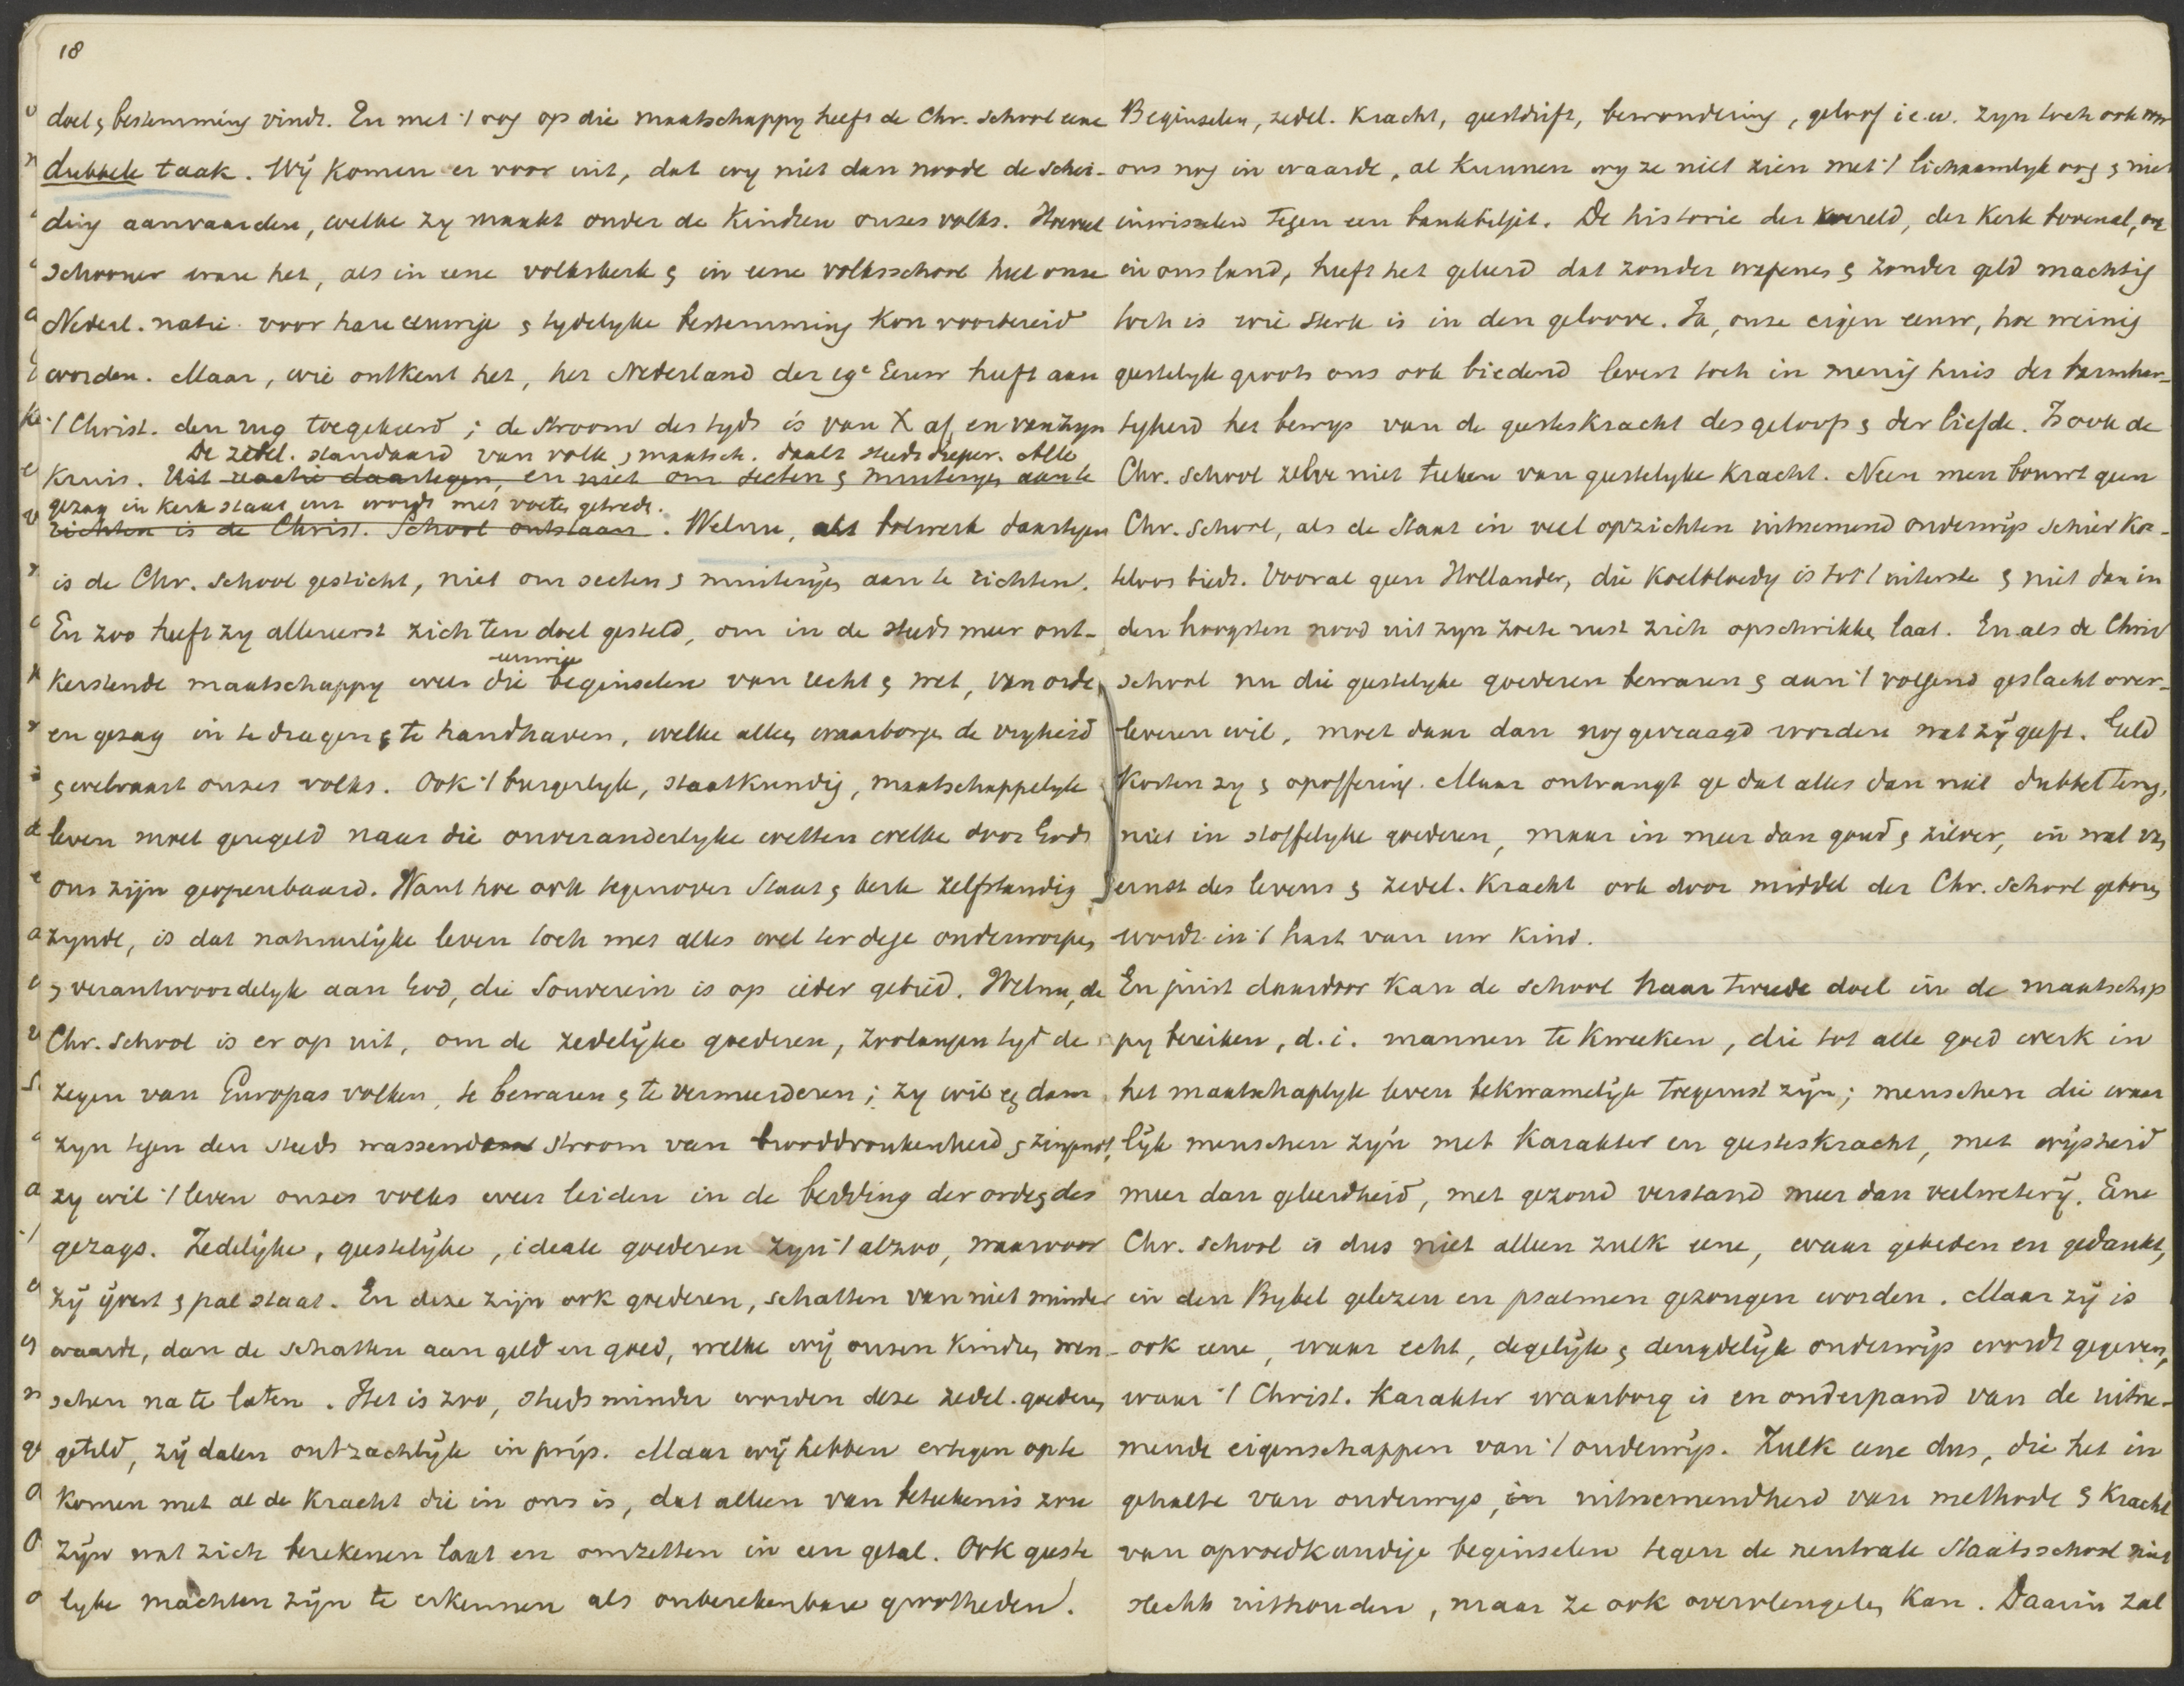 18
doel & bestemming vindt. En met 't oog op die maatschappy heeft de Chr. school eene
dubbele taak. Wij komen er voor uit, dat wy niet dan noode de schei-
ding aanvaarden, welke zy maakt onder de kindren onzes volks. Hoeveel
schooner ware het, als in eene volkskerk & in eene volksschool heel onze
Nederl. natie voor hare eeuwige & tydelyke bestemming kon voorbereid
worden. Maar, wie ontkent het, het Nederland der 19e Eeuw heeft aan
't Christ. den rug toegekeerd; de stroom des tyds is van X af, en van zyn
De zedel. standaard van volk & maatsch. daalt steeds dieper. Alle
kruis. Uit reactie daartegen, en niet om secten & muiterijen aan te
gezag in kerk staat enz wordt met voeten getreden.
richten is de Christ. School ontstaan. Welnu, als bolwerk daartegen
is de Chr. school gesticht, niet om secten & muiteryen aan te richten.
En zoo heeft zy allereerst zich ten doel gesteld, om in de steeds meer ont-
eeuwige
kerstende maatschappy weer die beginselen van recht & wet, van orde
en gezag in te dragen & te handhaven, welke alleen waarborgen de vryheid
& welvaart onzes volks. Ook 't burgerlyk, staatkundig, maatschappelyk
leven moet geregeld naar die onveranderlyke wetten welke door Gods
ons zijn geopenbaard. Want hoe ook tegenover Staat & kerk zelfstandig
zynde, is dat natuurlijke leven toch met alles wel terdege onderworpen
& verantwoordelyk aan God, die Souverein is op ieder gebied. Welnu, de
Chr. school is er op uit, om de zedelijke goederen, zoolangen tyd de
zegen van Europas volken, te bewaren & te vermeerderen; zy wil een dam
zyn tegen den steeds wassenden stroom van tworddronkenheid & zingenot,
zy wil 't leven onzes volks weer leiden in de bedding der orde & des
gezags. Zedelijke, geestelijke, ideale goederen zyn 't alzoo, waarvoor
zij ijvert & pal staat. En deze zijn ook goederen, schatten van niet minder
waarde, dan de schatten aan geld en goed, welke wij onzen kindren wen-
schen na te laten. Het is zoo, steeds minder worden deze zedel. goederen
geteld, zij dalen ontzachlijk in prijs. Maar wij hebben ertegen op te
komen met al de kracht die in ons is, dat alleen van beteekenis zou
zijn wat zich berekenen laat en omzetten in een getal. Ook geeste
lyke machten zijn te erkennen als onberekenbare grootheden.
Beginselen, zedel. kracht, geestdrift, bewondering, geloof i.e.w. zyn toch ook voor
ons nog in waarde, al kunnen wy ze niet zien met 't lichaamlyk oog & niet
inwisselen tegen een bankbiljet. De historie der wereld, der kerk bovenal, ook
in ons land, heeft het geleerd dat zonder wapenen & zonder geld machtig
toch is wie sterk is in den geloove. Ja, onze eigen eeuw, hoe weinig
geestelyk groots ons ook biedend levert toch in menig huis der barmhar-
tigheid het bewys van de geesteskracht des geloofs & der liefde. Is ook de
Chr. school zelve niet teeken van geestelyke kracht. Neen men bouwt geen
Chr. school, als de Staat in veel opzichten uitnemend onderwijs schier kos-
teloos biedt. Vooral geen Hollander, die koelbloedig is tot 't uiterste & niet dan in
den hoogsten nood uit zyn zoete rust zich opschrikken laat. En als de Christ
school nu die geestelyke goederen bewaren & aan 't volgend geslacht over-
leveren wil, moet daar dan nog gevraagd worden wat zij geeft. Geld
kosten zy & opoffering. Maar ontvangt ge dat alles dan niet dubbel terug,
niet in stoffelyke goederen, maar in meer dan goud & zilver, in wat van
ernst des levens & zedel. kracht ook door middel der Chr. school geboren
wordt in 't hart van uw kind.
En juist daardoor kan de school haar tweede doel in de maatschap
py bereiken, d.i. mannen te kweeken, die tot alle goed werk in
het maatschaplyk leven bekwamelijk toegerust zijn; menschen die waar
lijk menschen zijn met karakter en geesteskracht, met wijsheid
meer dan geleerdheid, met gezond verstand meer dan veelweterij. Eene
Chr. school is dus niet alleen zulk eene, waar gebeden en gedankt,
in den Bybel gelezen en psalmen gezongen worden. Maar zij is
ook eene, waar echt, degelijk & deugdelijk onderwijs wordt gegeven,
waar 't Christ. karakter waarborg is en onderpand van de uitne-
mende eigenschappen van 't onderwijs. Zulk eene dus, die het in
gehalte van onderwys, in uitnemendheid van methode & kracht
van opvoedkundige beginselen tegen de neutrale Staatsschool niet
slechts uithouden, maar ze ook overvleugelen kan. Daarin zal